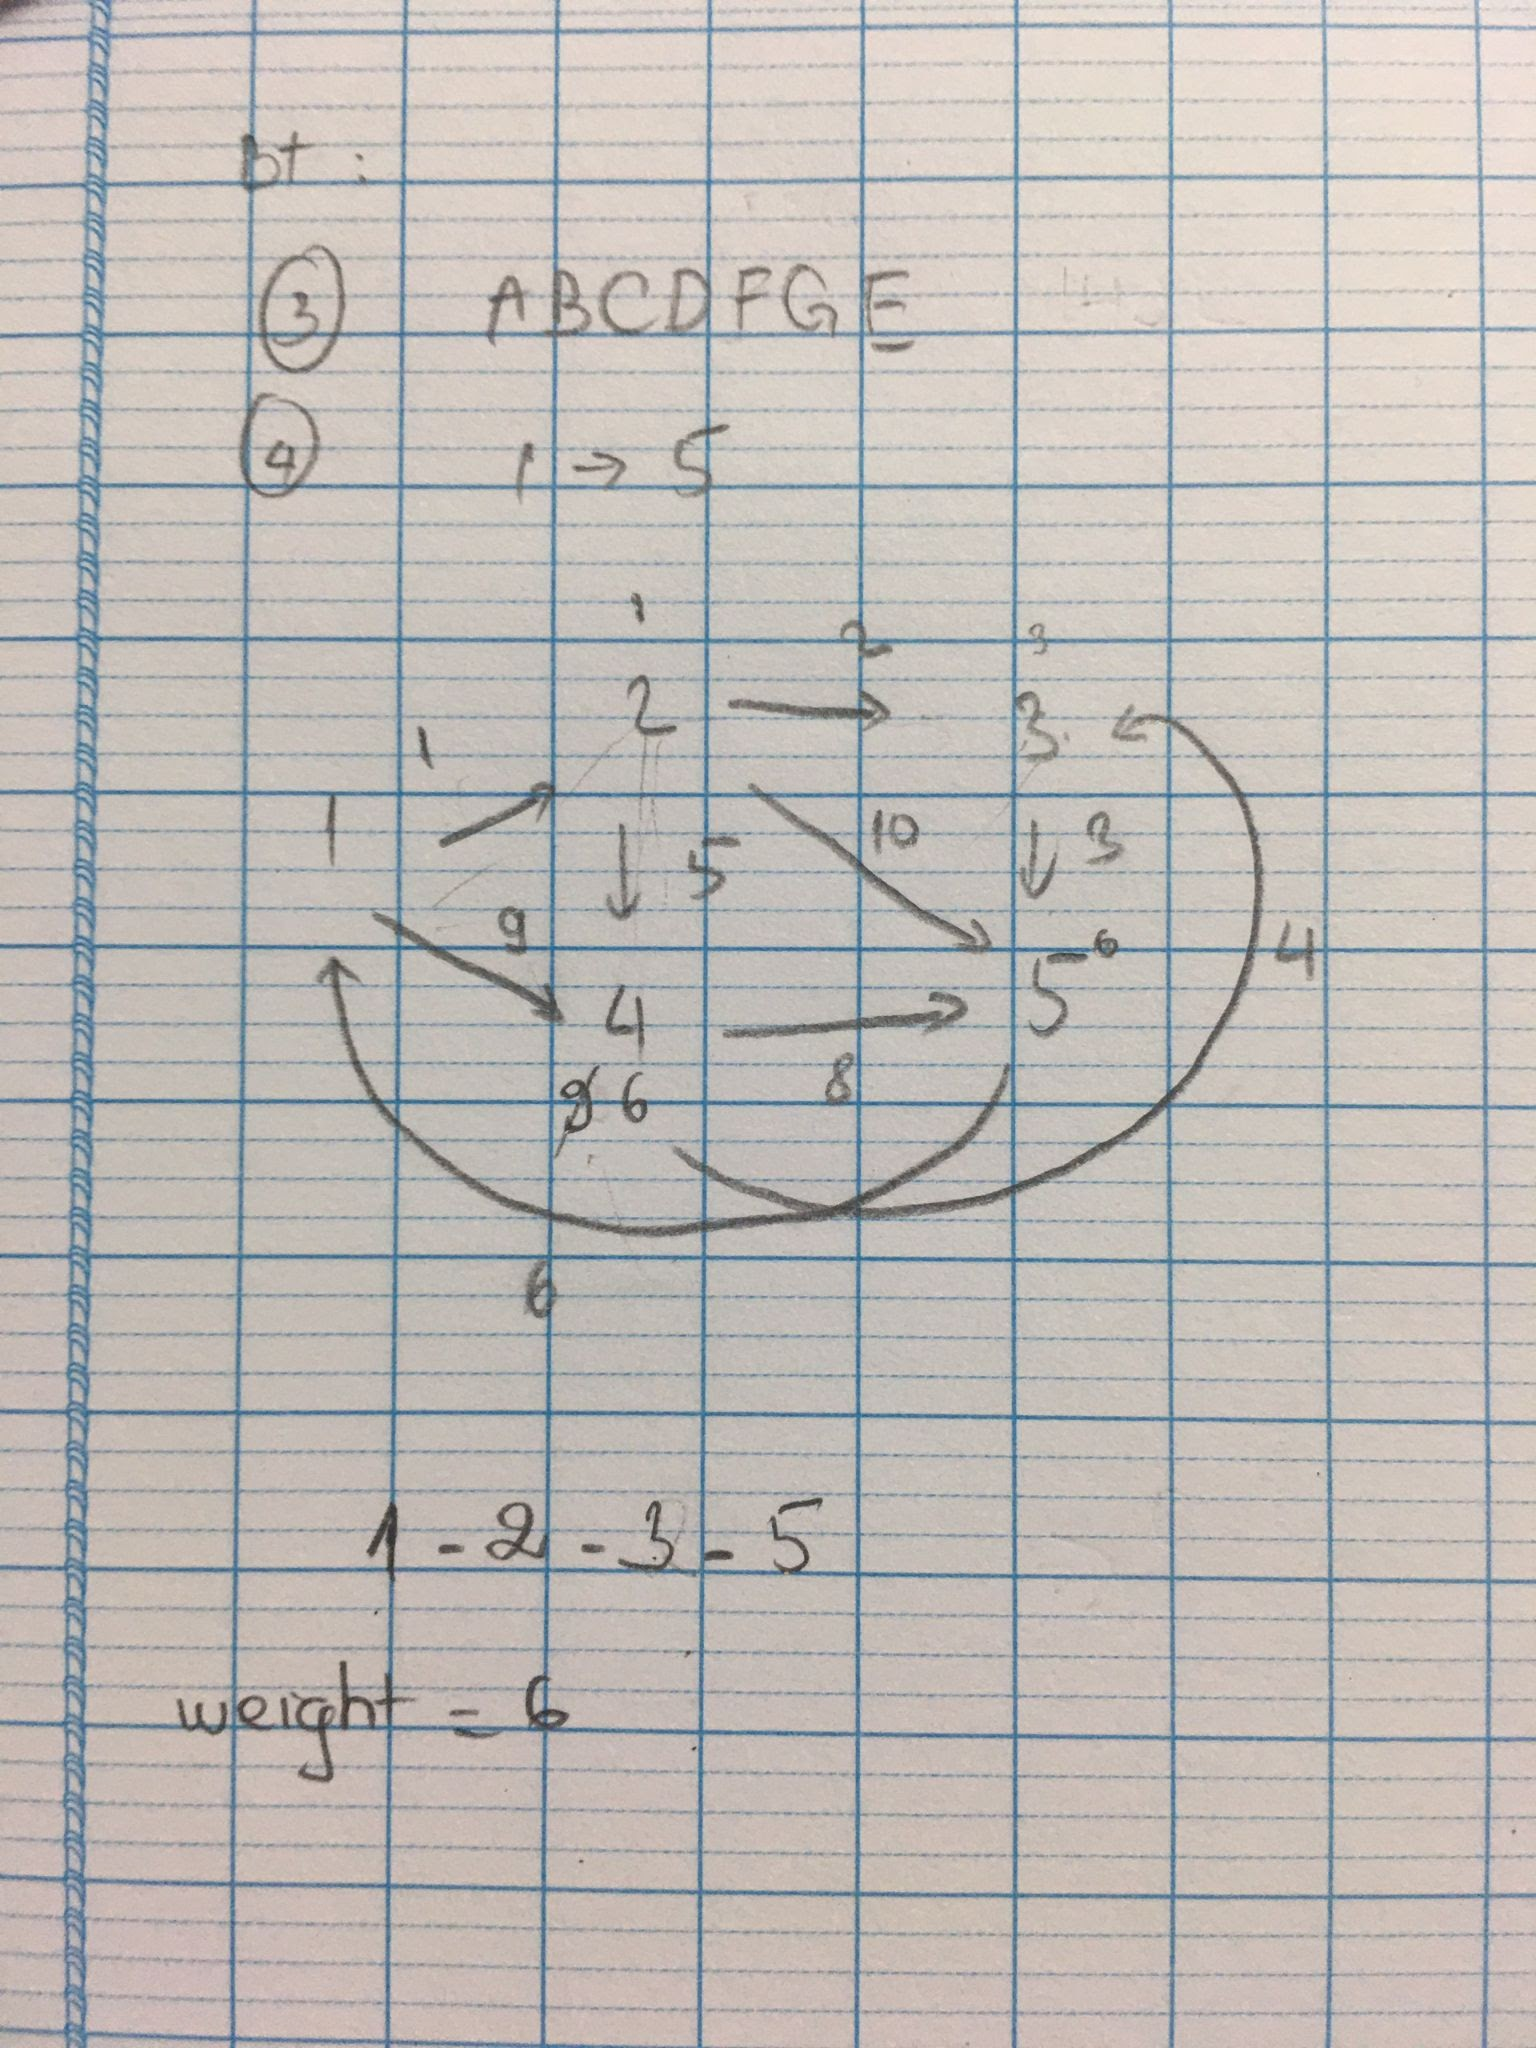 bt :
3 ABCDFGE
4 1 → 5
1
2 3
2 → 3
1
1 10 3
5
9 6 4
4 → 5
9 6 8
6
1 - 2 - 3 - 5
weight = 6